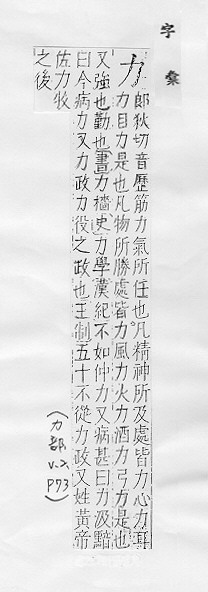 字彙
力 郎狄切音歷筋力氣所任也凡精神所及處皆力心力耳
力目力是也凡物所勝處皆力風力火力酒力弓力是也
又強也勤也書力穡史力學漢紀不如仲力又病甚曰力汲黯
曰今病力又力政力役之政也王制五十不從力政又姓黃帝
佐力牧
之後
(力部
V.2,
P73)